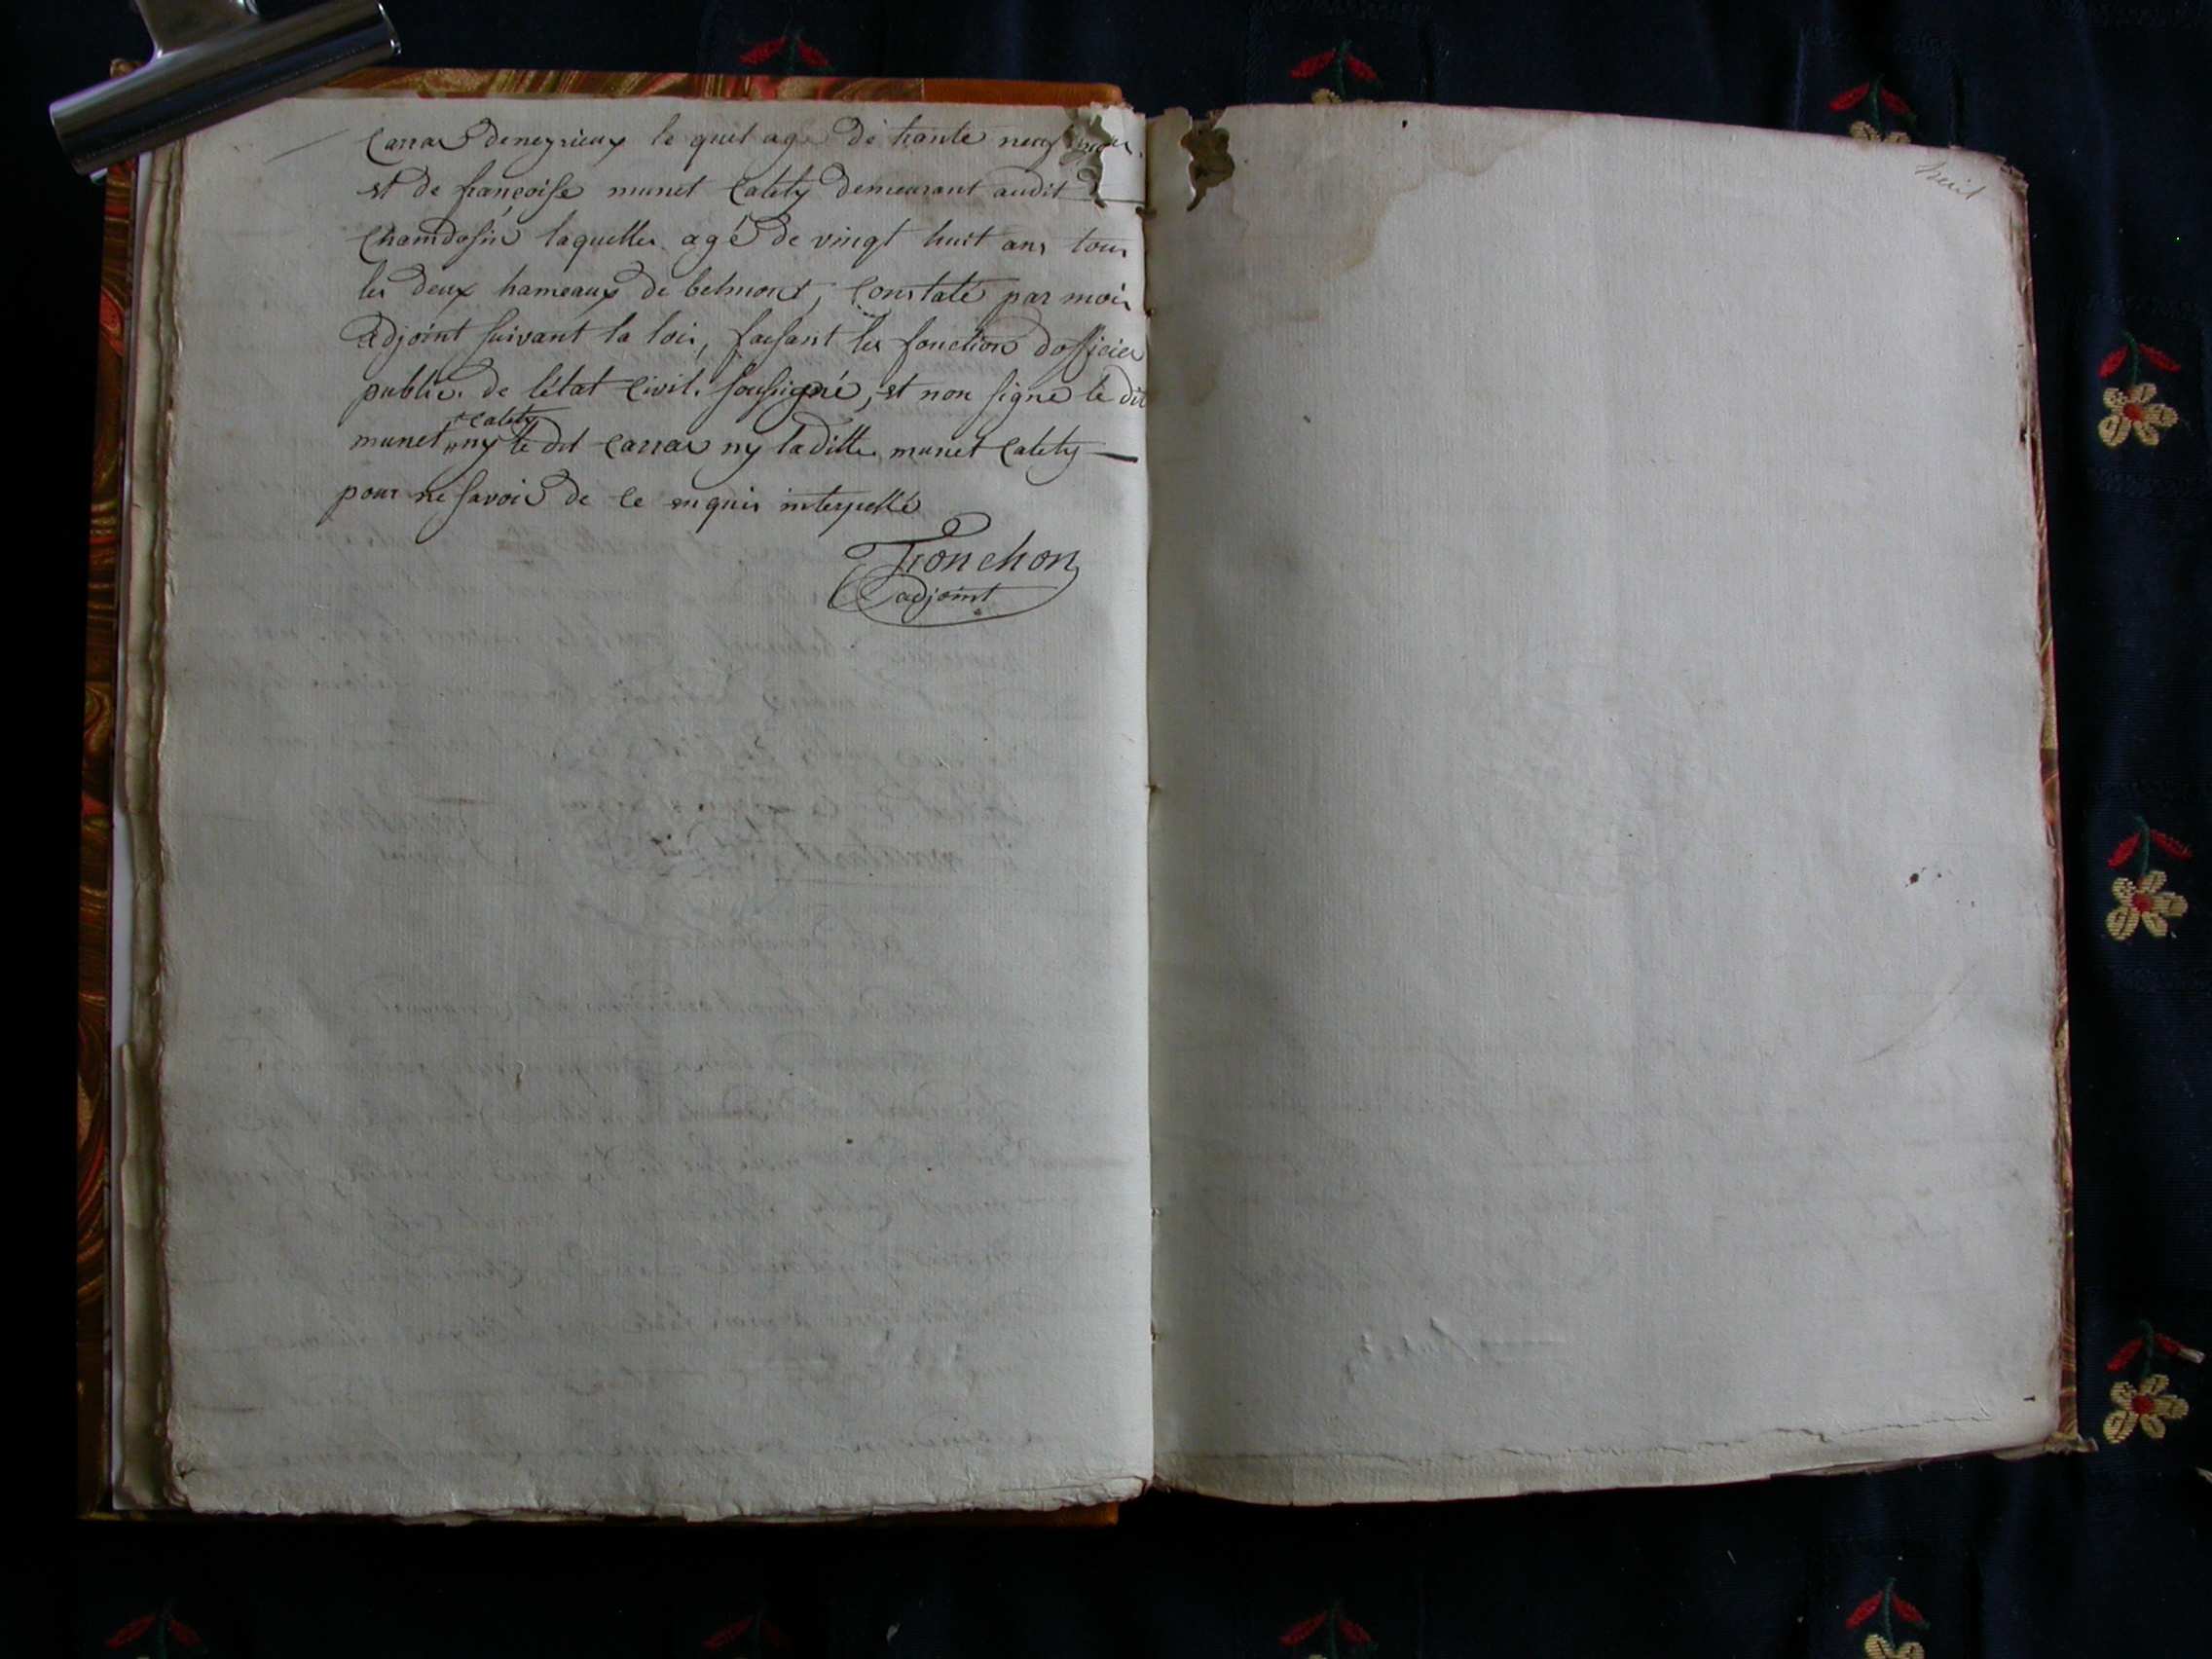 Carra deneyrieux le quel agé de trante neuf
et de françoise munet Catety demeurant audit
Chamdosin laquelle agé de vingt huit ans tous
les deux hameaux de belmont, Constaté par moi
adjoint suivant la loi, faisant les fonction dofficier
public de létat Civil soussigné, et non signe le dit
Catety
munet ny le dit Carra ny laditte munet Catety
pour ne savoir de ce enquis interpellé
Tronchon
adjoint
huit